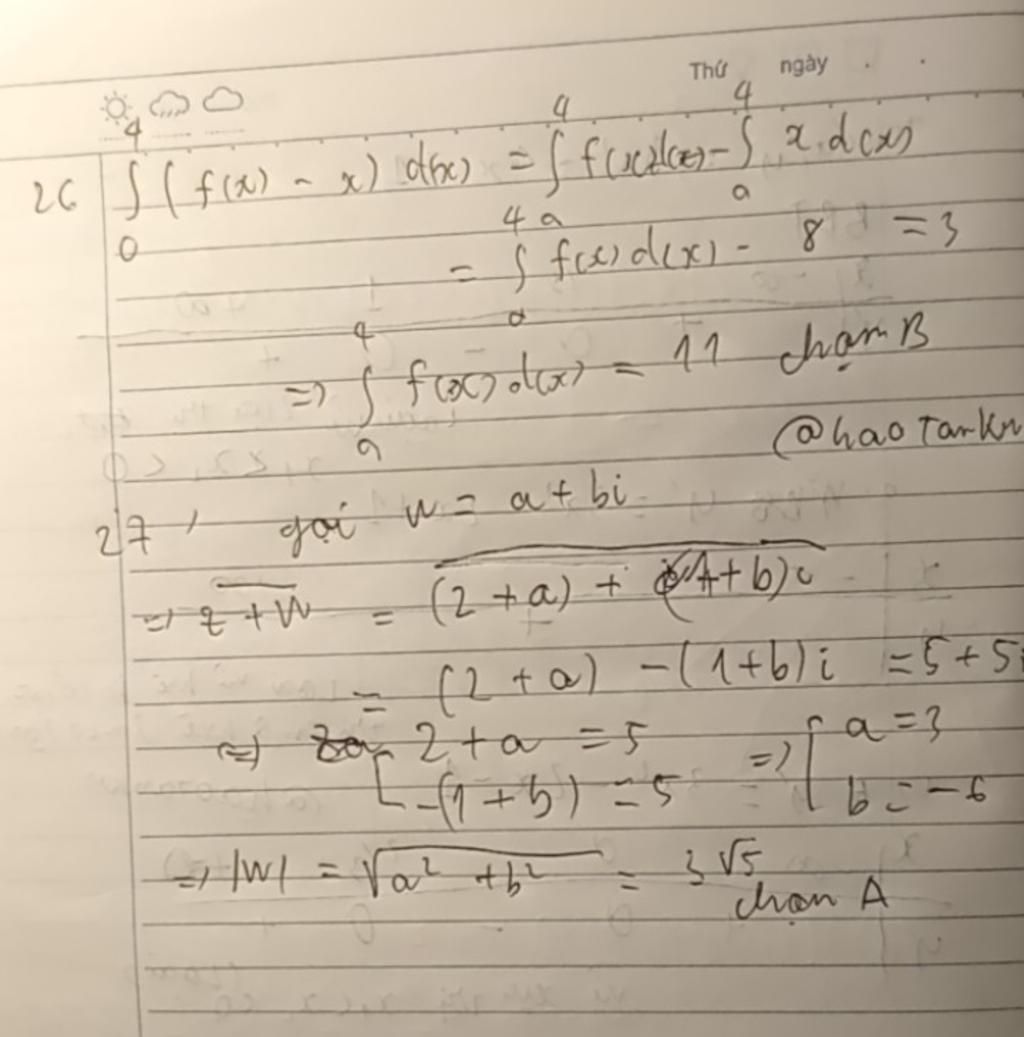 Thứ ngày
26 ∫₀⁴ (f(x) - x) d(x) = ∫ₐ⁴ f(x)d(x) - ∫ₐ⁴ x.d(x)
= ∫ₐ⁴ f(x) d(x) - 8 = 3
=> ∫ₐ⁴ f(x) d(x) = 11 chọn B
@haotankn
27, gọi w = a + bi
=> \overline{z + w} = \overline{(2 + a) + (1 + b)i}
= (2 + a) - (1 + b)i = 5 + 5i
=> [ 2 + a = 5 => [ a = 3
-(1 + b) = 5 b = -6
=> |w| = √(a² + b²) = 3√5
chọn A